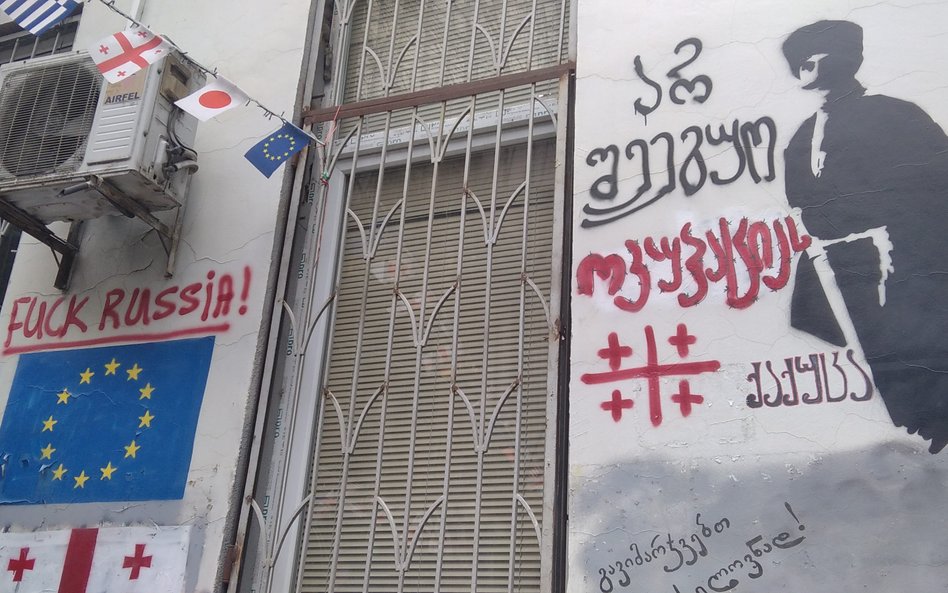 AIRFEL
FUCK RUSSIA!
არ
შეეგუო
ოკუპაციას
ქაქუცა
გავიმარჯვებთ